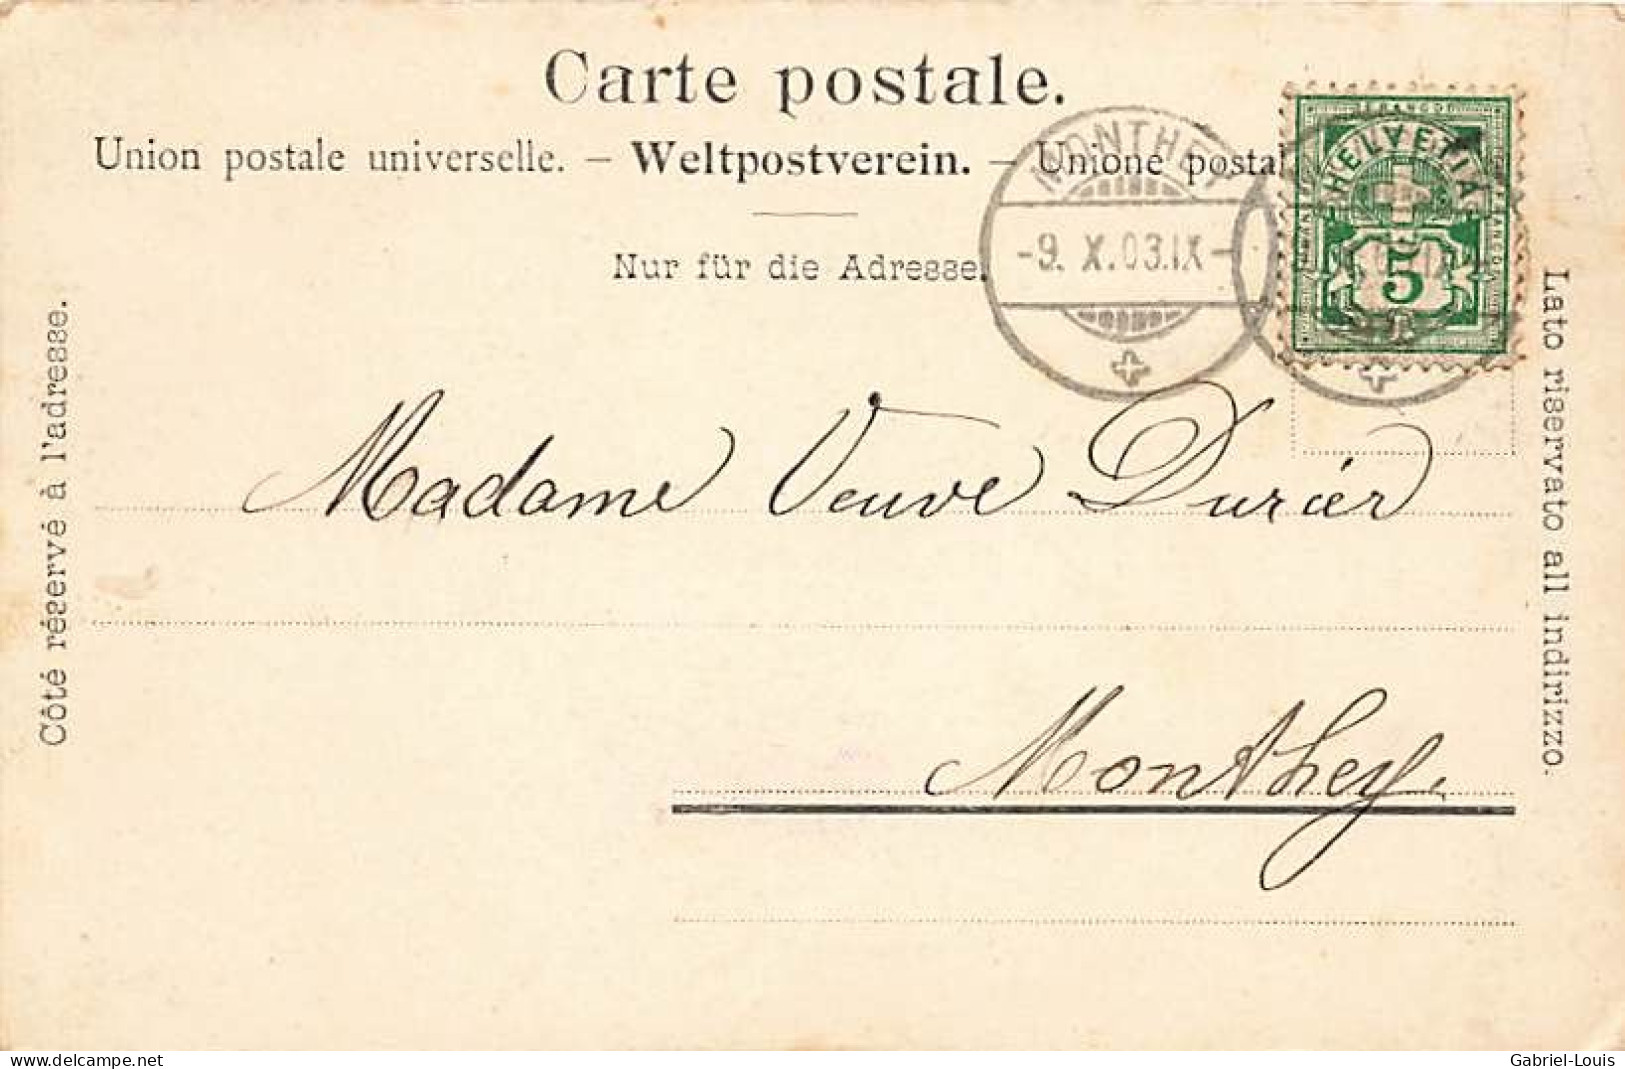 Carte postale.
Union postale universelle. – Weltpostverein. – Unione postal
Nur für die Adresse.
Côté réservé à l'adresse.
Lato riservato all indirizzo.
MONTHEY
-9. X.03.IX-
FRANCO
HELVETIA
5
Madame Veuve Durier
Monthey.
www.delcampe.net
Gabriel-Louis